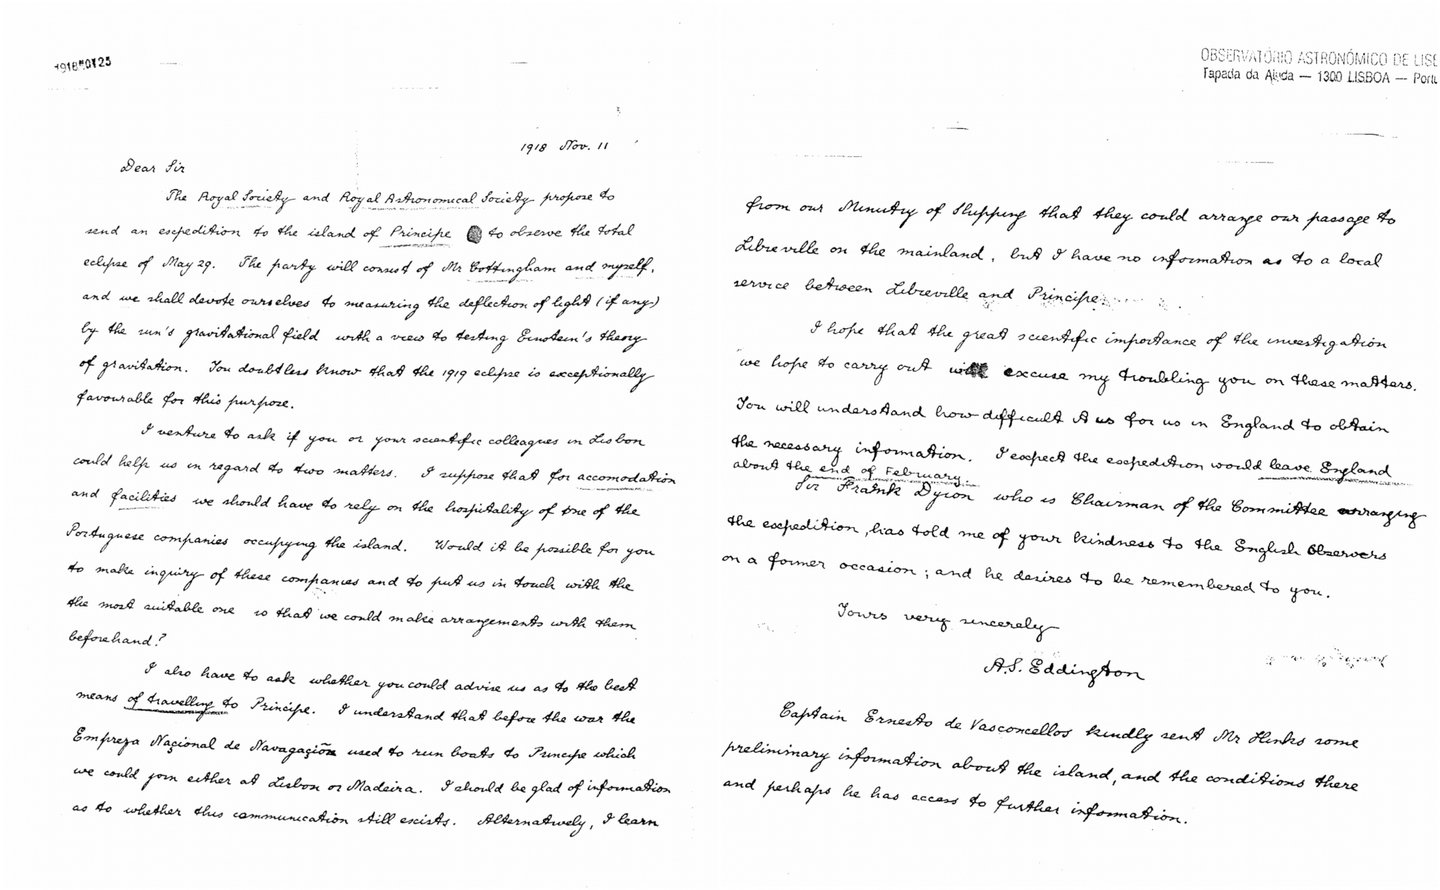 1918
25
1918 Nov. 11
Dear Sir
The Royal Society and Royal Astronomical Society propose to
send an expedition to the island of Principe to observe the total
eclipse of May 29. The party will consist of Mr Cottingham and myself,
and we shall devote ourselves to measuring the deflection of light (if any)
by the sun's gravitational field with a view to testing Einstein's theory
of gravitation. You doubtless know that the 1919 eclipse is exceptionally
favourable for this purpose.
I venture to ask if you or your scientific colleagues in Lisbon
could help us in regard to two matters. I suppose that for accomodation
and facilities we should have to rely on the hospitality of one of the
Portuguese companies occupying the island. Would it be possible for you
to make inquiry of these companies and to put us in touch with the
the most suitable one so that we could make arrangements with them
beforehand?
I also have to ask whether you could advise us as to the best
means of travelling to Principe. I understand that before the war the
Empreza Naçional de Navagaçiõn used to run boats to Principe which
we could join either at Lisbon or Madeira. I should be glad of information
as to whether this communication still exists. Alternatively, I learn
OBSERVATÓRIO ASTRONÓMICO DE LISB
Tapada da Ajuda — 1300 LISBOA — Portu
from our Ministry of Shipping that they could arrange our passage to
Libreville on the mainland, but I have no information as to a local
service between Libreville and Principe.
I hope that the great scientific importance of the investigation
we hope to carry out will excuse my troubling you on these matters.
You will understand how difficult it is for us in England to obtain
the necessary information. I expect the expedition would leave England
about the end of February.
Sir Frank Dyson who is Chairman of the Committee arranging
the expedition, has told me of your kindness to the English Observers
on a former occasion; and he desires to be remembered to you.
Yours very sincerely
A.S. Eddington
Captain Ernesto de Vasconcellos kindly sent Mr Hinks some
preliminary information about the island, and the conditions there
and perhaps he has access to further information.